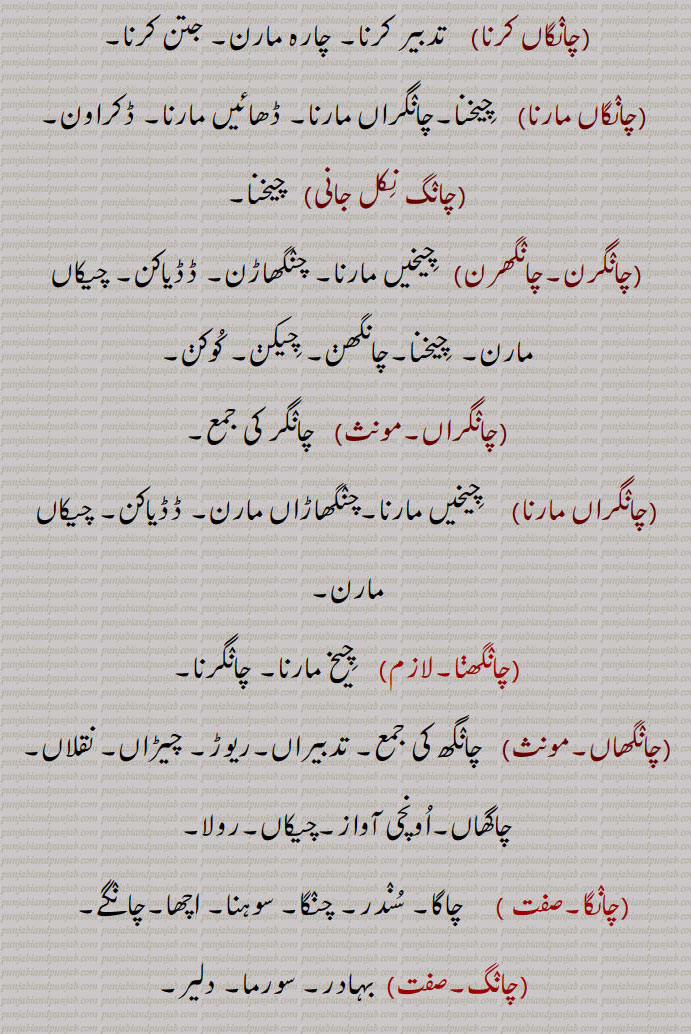 (چانگاں کرنا) تدبیر کرنا۔ چارہ مارن۔ جتن کرنا۔
(چانگاں مارنا) چِیخنا۔چانگراں مارنا۔ ڈھائیں مارنا۔ ڈکراون۔
(چانگ نِکل جانی) چیخنا۔
(چانگرن۔چانگھرن) چِیخیں مارنا۔ چنگھاڑن۔ ڈڈیاکن۔ چیکاں
مارن۔ چِیخنا۔چانگھن۔ چِیکن۔ کُوکن۔
(چانگراں۔مونث) چانگر کی جمع۔
(چانگراں مارنا) چِیخیں مارنا۔چنگھاڑاں مارن۔ ڈڈیاکن۔ چیکاں
مارن۔
(چانگھنا۔لازم) چِیخ مارنا۔ چانگرنا۔
(چانگھاں۔مونث) چانگھ کی جمع۔ تدبیراں۔ریوڑ۔ چیڑاں۔ نقلاں۔
چاگھاں۔اُونچی آواز۔چیکاں۔رولا۔
(چانگا۔صفت ) چاگا۔ سُندر۔ چنگا۔ سوہنا۔ اچھا۔چانگے۔
(چانگ۔صفت) بہادر۔ سورما۔ دلیر۔